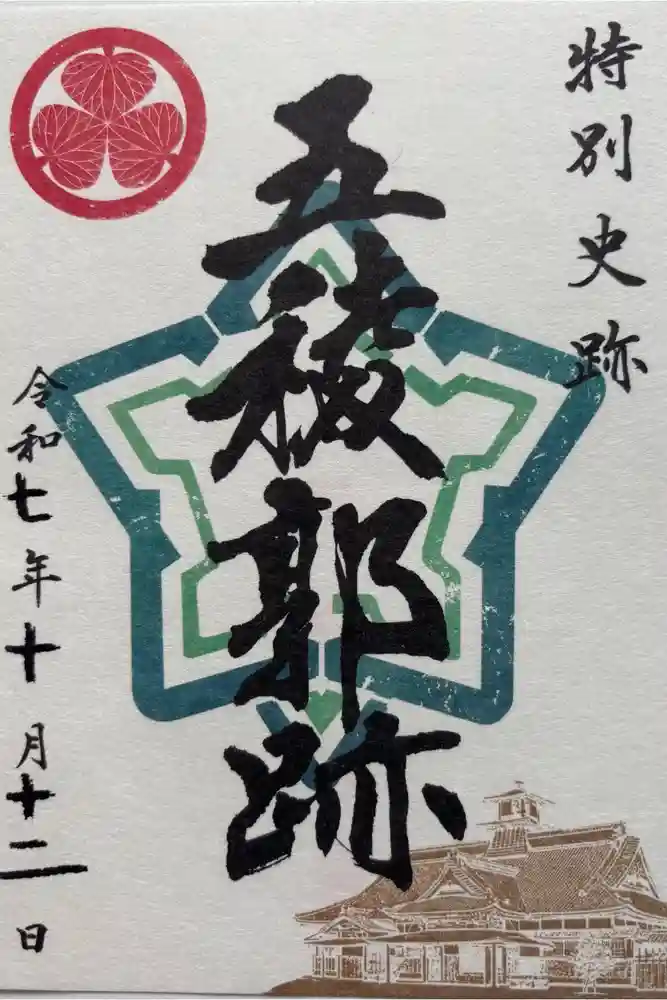 特別史跡
五稜郭跡
令和七年十月十二日